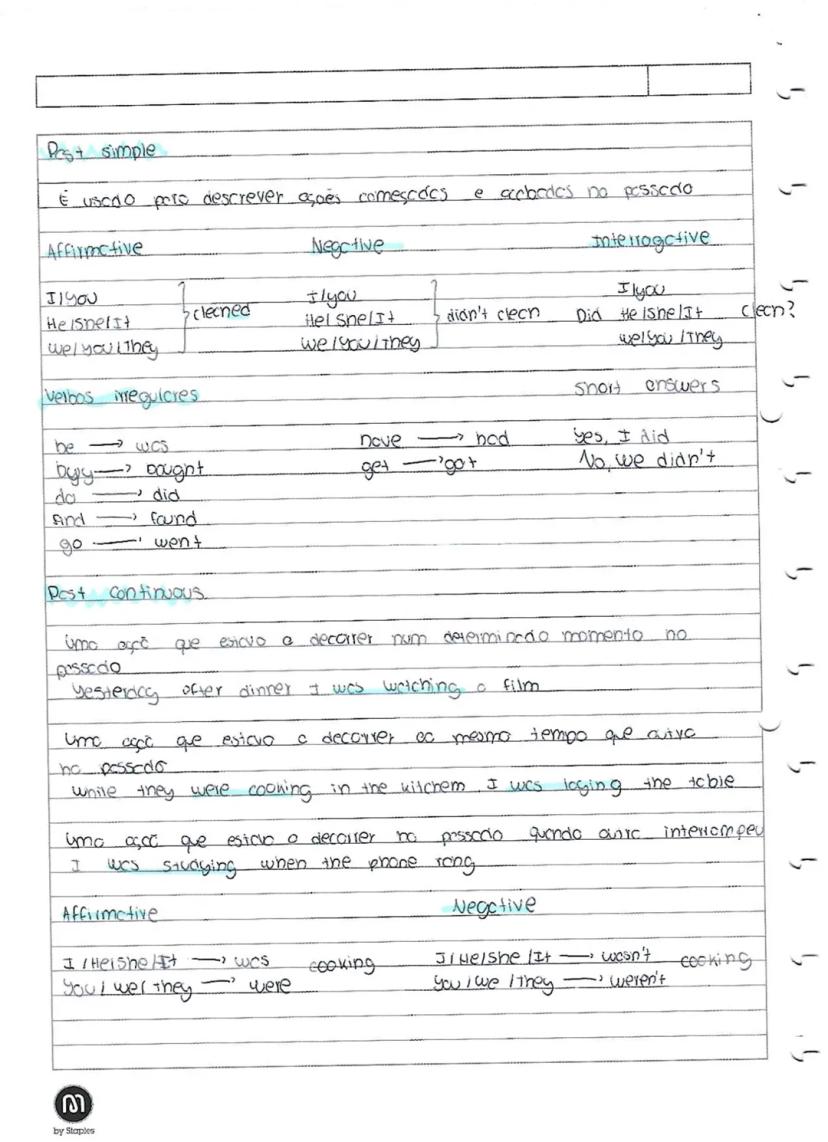 Past simple
É usado para descrever ações começadas e acabadas no passado
Affirmative Negative Interrogative
I/you I/you I/you
He/she/It } cleaned He/She/It } didn't clean Did He/she/It clean?
we/you/They we/you/they we/you/They
Verbos irregulares short answers
be → was have → had yes, I did
buy → bought get → got No, we didn't
do → did
find → found
go → went
Past continuous
Uma açã que estava a decorrer num determinado momento no
passado
Yesterday after dinner I was watching a film
Uma açã que estava a decorrer ao mesmo tempo que outra
no passado
while they were cooking in the kitchem, I was laying the table
Uma açã que estava a decorrer no passado quando outra interrompeu
I was studying when the phone rang
Affirmative Negative
I/He/she/It → was cooking I/He/she/It → wasn't cooking
You/we/they → were you/we/they → weren't
by Staples